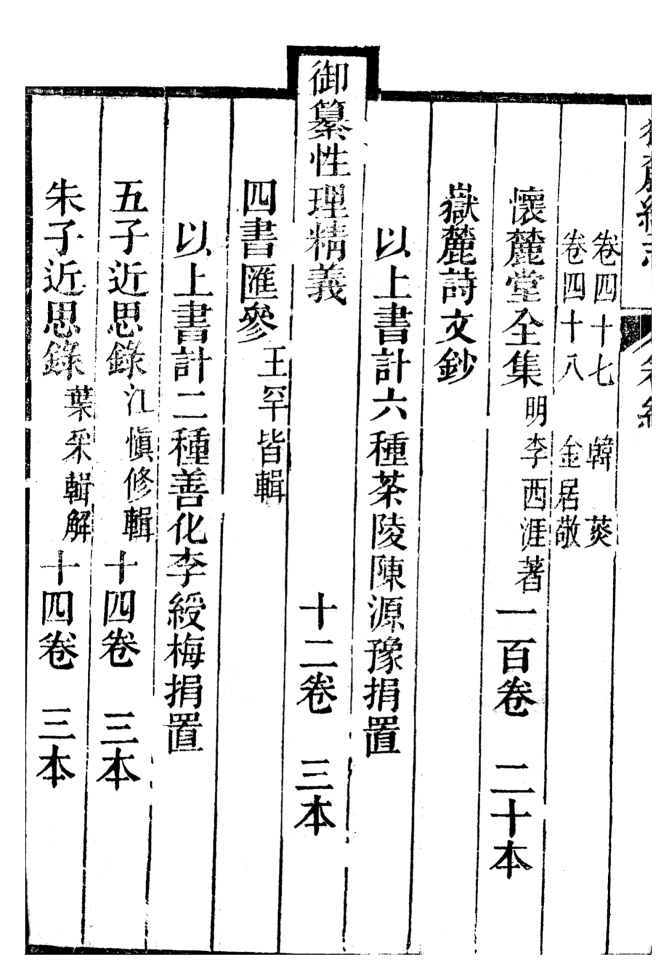 卷四十七 韓菼
卷四十八 金居敬
懷麓堂全集 明李西涯著 一百卷 二十本
嶽麓詩文鈔
以上書計六種茶陵陳源豫捐置
御纂性理精義 十二卷 三本
四書匯參 王罕皆輯
以上書計二種善化李綬梅捐置
五子近思錄 江慎修輯 十四卷 三本
朱子近思錄 葉采輯解 十四卷 三本